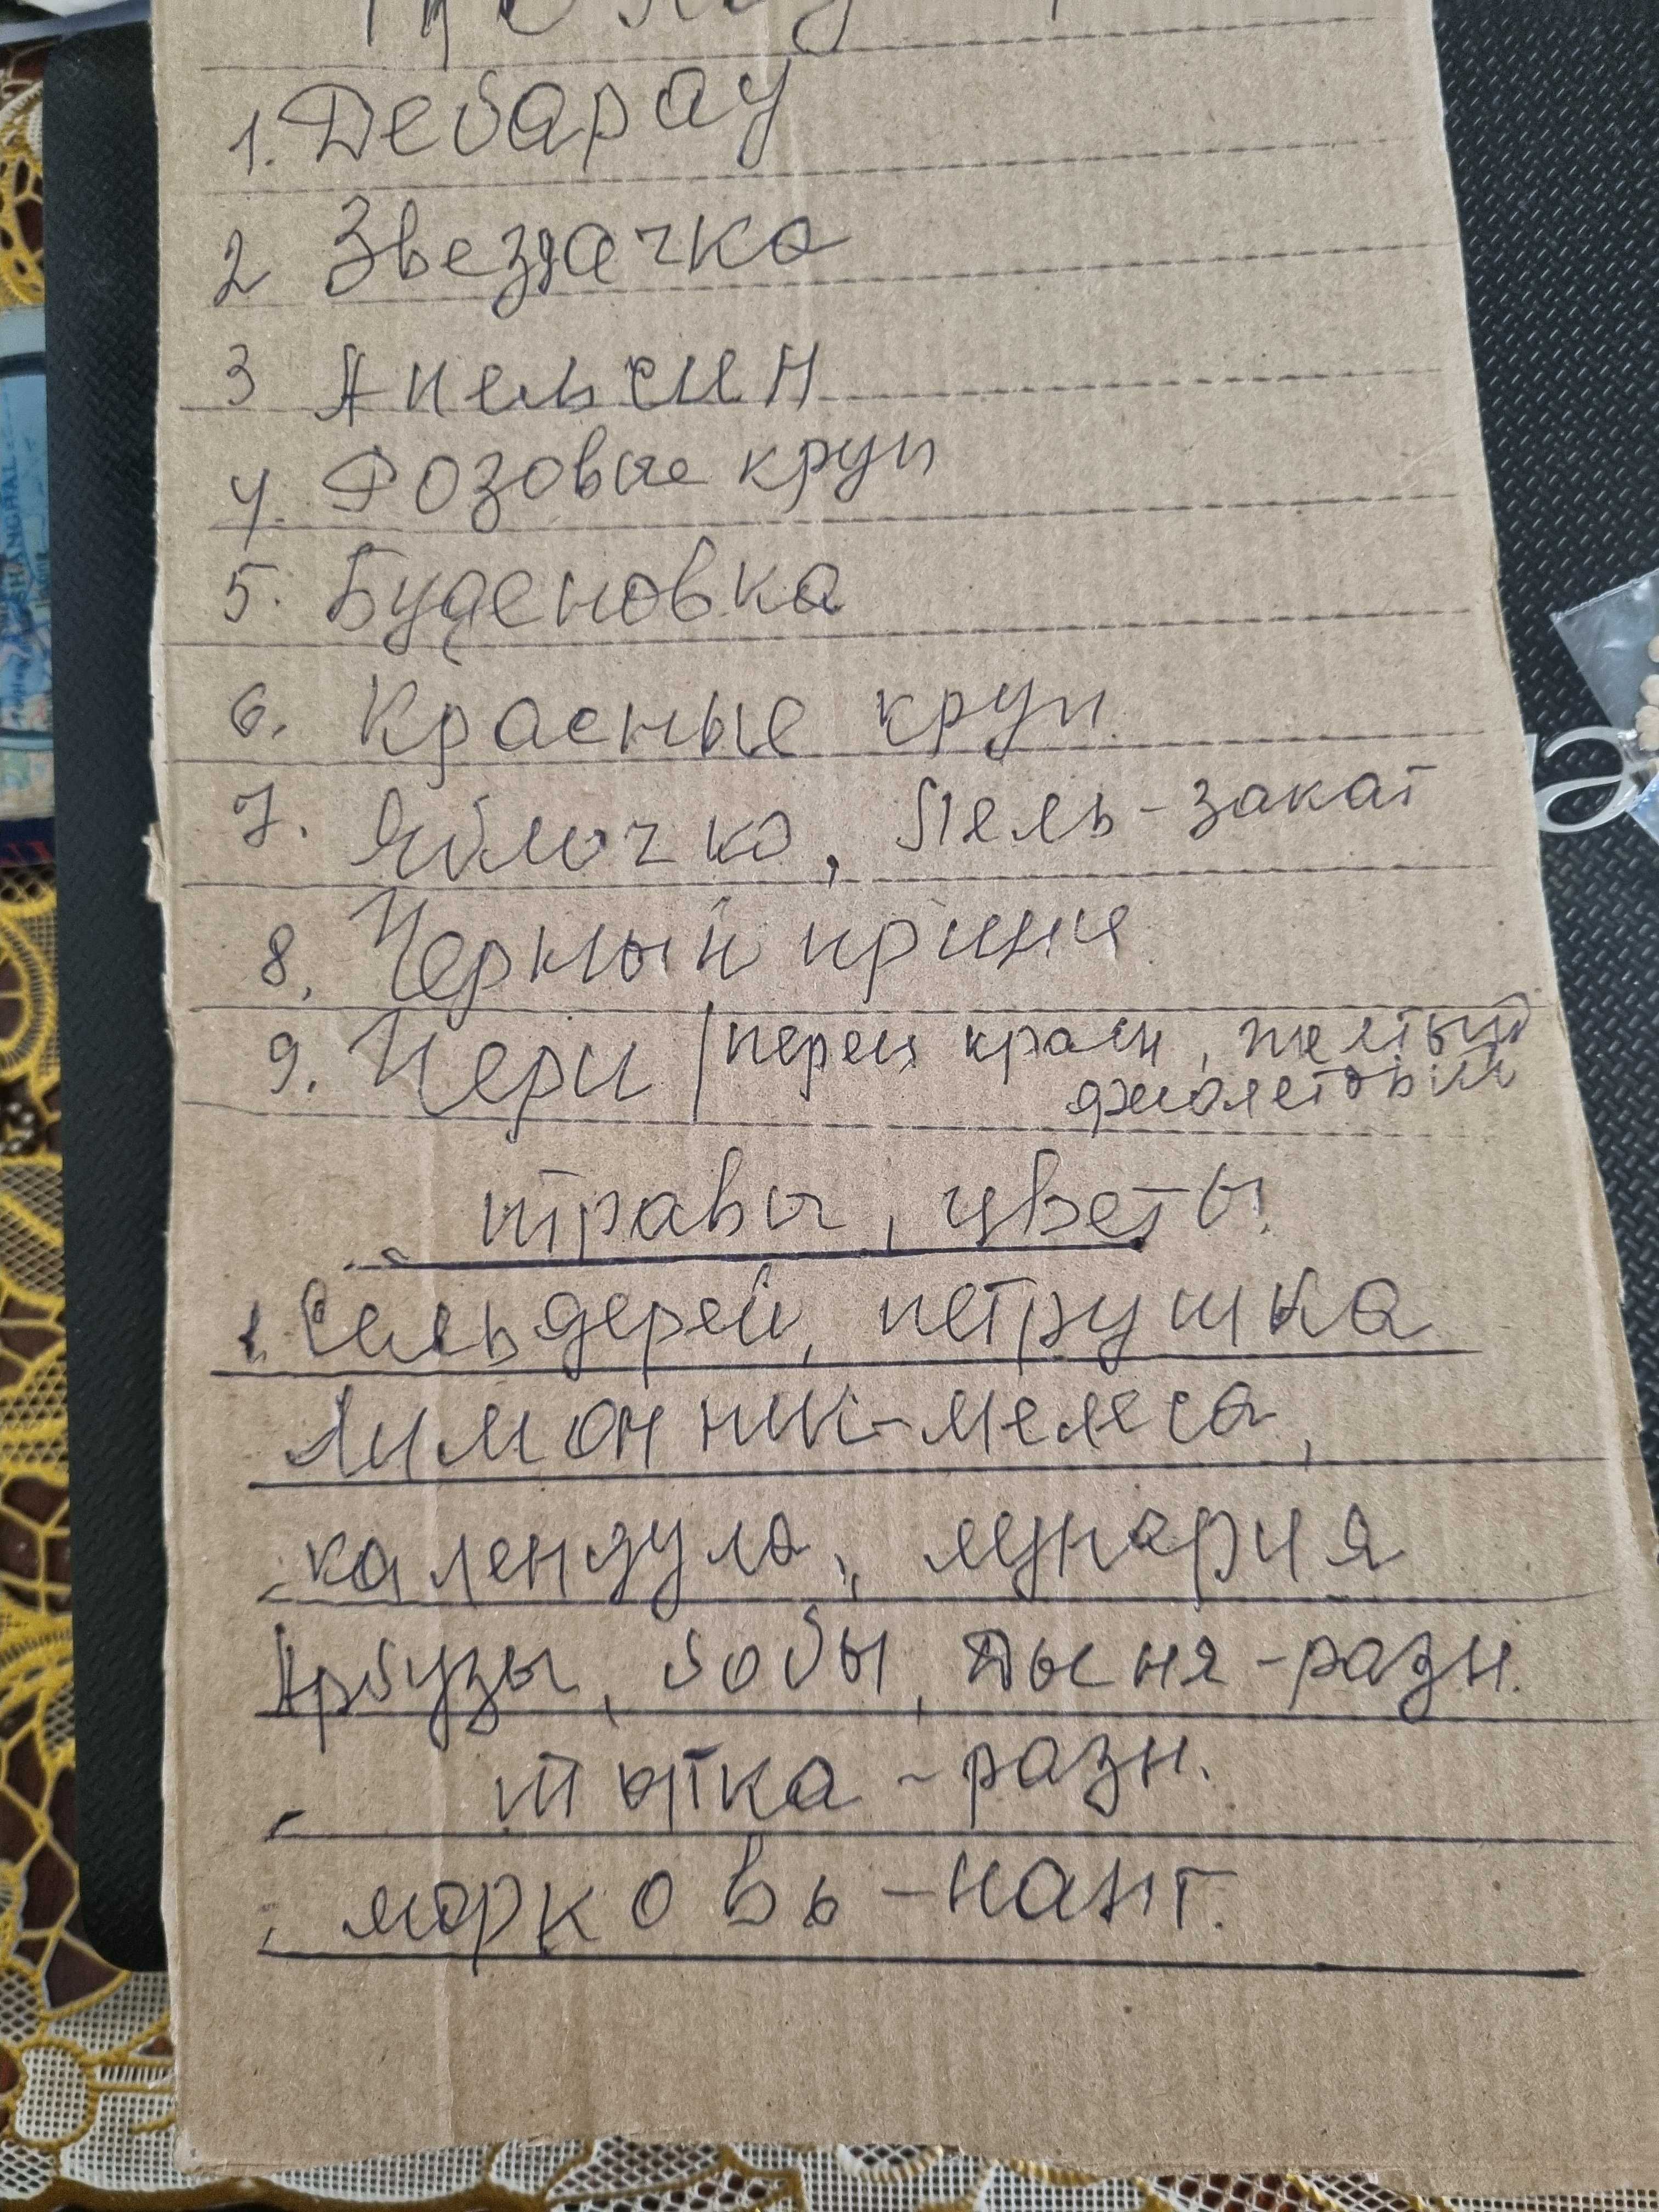 1. Дебарау
2 Звездачка
3 Апельсин
4. Розовые круп
5. Буденовка
6. Красные круп.
7. Яблочко, Лель-закат
8. Черный принц
9. Чери / перец красн, желтый
фиолетовый
травы, цветы.
1. Сельдерей, петрушка
Лимонник-мелеса,
календула, лунария
Арбузы, бобы, Дыня-разн.
тыпка-разн.
морковь-нант.